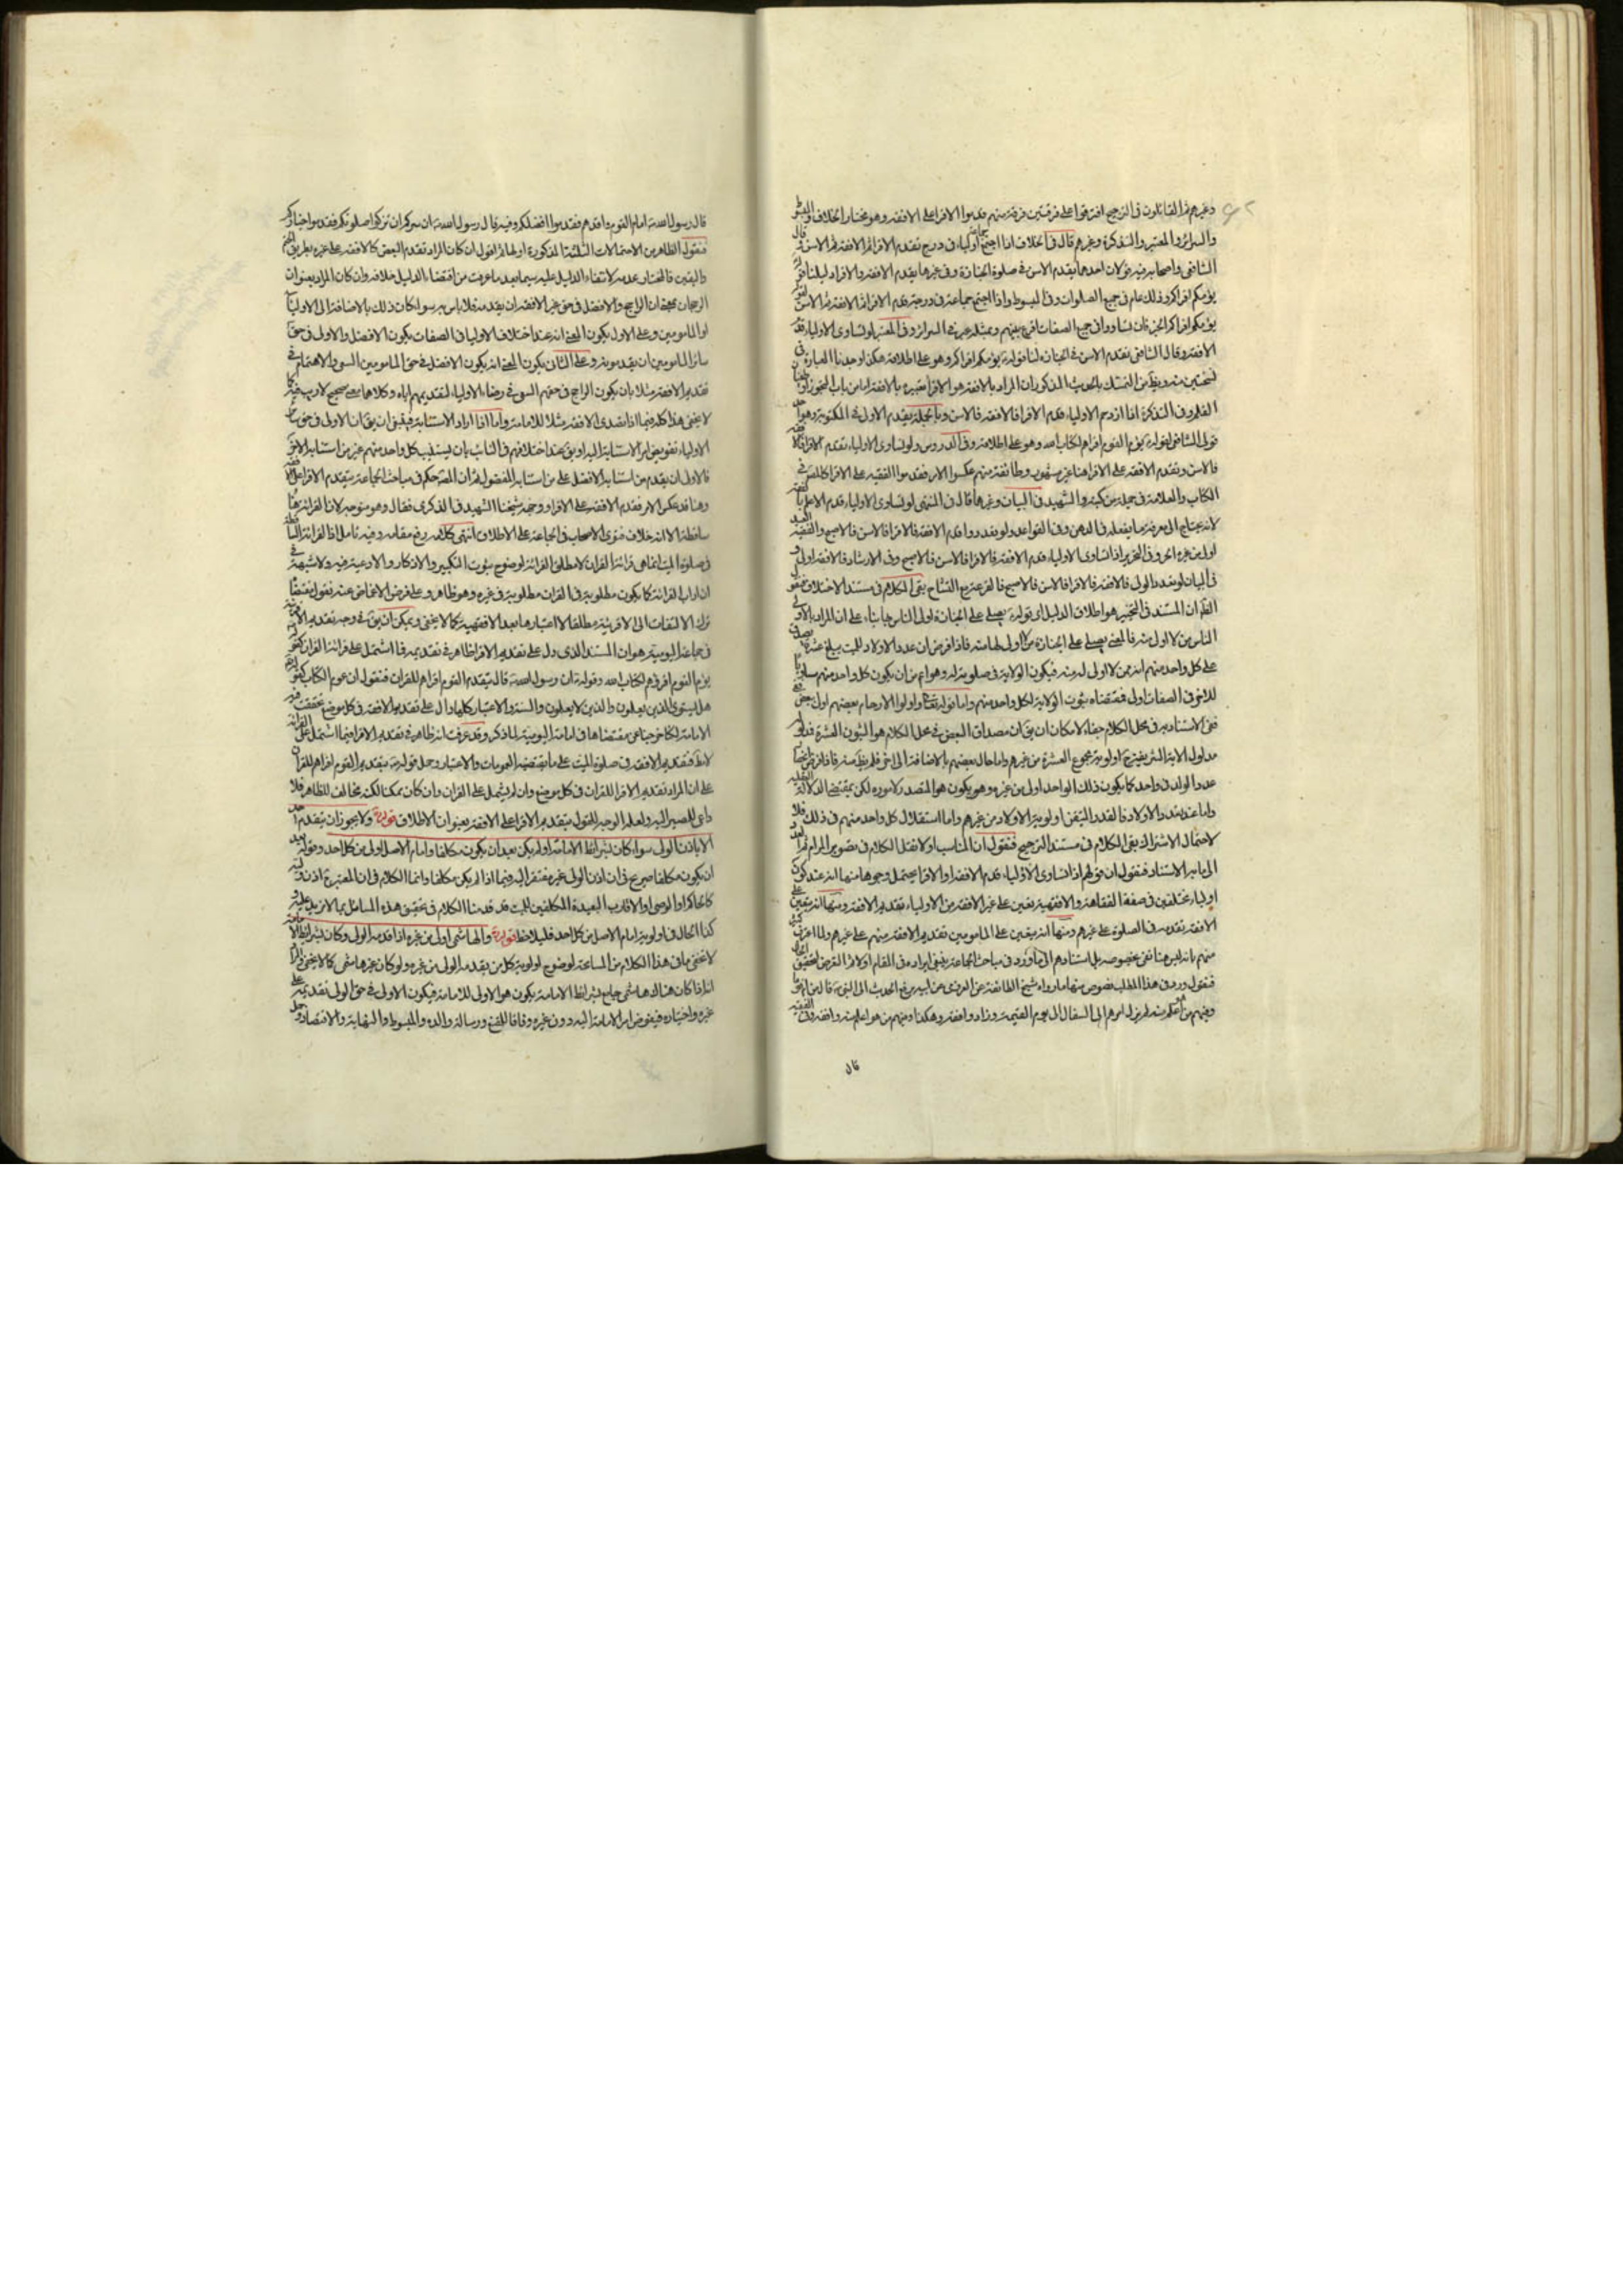 وغيرهم ثم القائلون في الترجيح افترقوا على فرقتين فرقة منهم قدموا الاقرا على الافقه وهو مختار الخلاف والمبسوط
والسرائر والمعتبر والتذكرة وغيرهم قال في الخلاف اذا اجتمع جماعة اولياء في درج تقدم الاقرا ثم الافقه ثم الاسن وقال
الشافعي واصحابه فيه قولان احدهما يقدم الاسن في صلوة الجنازة وفي غيرها يقدم الافقه والاقرا دليلنا قوله
يؤمكم اقراكم وذلك عام في جميع الصلوات وفي المبسوط واذا اجتمع جماعة في درجة قدم الاقرا ثم الافقه ثم الاسن لقوله
يؤمكم اقراكم الخبر فان تساووا في جميع الصفات اقرع بينهم وبمثله عبر في السرائر وفي المعتبر لو تساوى الاولياء قدم
الافقه وقال الشافعي تقدم الاسن في الجنازة لنا قوله يؤمكم اقراكم وهو على اطلاقه هكذا وجدنا العبارة في
نسختين منه ويظهر من التمسك بالحديث المذكور ان المراد بالافقه هو الاقرا تعبيره بالافقه اما من باب التجوز او
القلم وفي التذكرة اذا ازدحم الاولياء قدم الاقرا فالافقه فالاسن وبالجملة يقدم الاولى في المكتوبة وهو احد
قولي الشافعي لقوله يؤم القوم اقراهم لكتاب الله وهو على اطلاقه وفي الدروس ولو تساوى الاولياء تقدم الاقرا فالافقه
فالاسن وتقدم الافقه على الاقرا هنا غير مشهور وطائفة منهم عكسوا الامر فقدموا الفقيه على الاقرا كالمصنف في
الكتاب والعلامة في جملة من كتبه والشهيد في البيان وغيرهما قال في المنتهى لو تساوى الاولياء قدم الاعلم
لانه يحتاج الى معرفة ما يفعله في الدفن وفي القواعد ولو تعددوا قدم الافقه فالاقرا فالاسن فالاصبح والفقيه العبد
اولى من غيره الحر وفي التحرير اذا تساوى الاولياء قدم الافقه فالاقرا فالاسن فالاصبح وفي الارشاد فالافقه اولى و
في البيان لو تعدد الولي فالافقه فالاقرا فالاسن فالاصبح فالقرعة مع التشاح بقي الكلام في مستند الاختلاف فنقول
الظاهر ان المستند في التخيير هو اطلاق الدليل اي قوله يصلي على الجنازة اولى الناس بها بناء على ان المراد بالاولى
الناس من لا اولى منه فالمعنى يصلي على الجنازة من لا اولى لها منه فاذا فرض ان عدد الاولاد للميت يبلغ عشرة يصدق
على كل واحد منهم انه ممن لا اولى له منه فيكون الولاية في صلوته له وهو اعم من ان يكون كل واحد منهم مساويا
للاخر في الصفات او لا فمقتضاه ثبوت الولاية لكل واحد منهم واما قوله تعالى واولوا الارحام بعضهم اولى ببعض
ففي الاستناد به في محل الكلام خفاء لامكان ان يق ان مصداق البعض في محل الكلام هو البنون العشرة
مدلول الاية الشريفة ح اولوية مجموع العشرة من غيرهم واما حال بعضهم بالاضافة الى الاخر فلم يظهر منه
عدد الولد في واحد كما يكون ذلك الواحد اولى من غيره وهو يكون هو المتصدر لاموره لكن بمقتضى الدلالة
واما عند تعدد الاولاد فالقدر المتيقن اولوية الاولاد من غيرهم واما استقلال كل واحد منهم في ذلك فلا
لاحتمال الاشتراك بقي الكلام في مستند الترجيح فنقول ان المناسب اولا نقل الكلام في تصوير المرام ثم
الى ما به الاستناد فنقول ان قولهم اذا تساوى الاولياء قدم الافقه او الاقرا يحتمل وجوها منها انه عند كون
اولياء مختلفين في صفة الفقاهة والافقهية يتعين على غير الافقه من الاولياء تقديم الافقه ومنها انه يتعين على
الافقه تقدمه في الصلوة على غيرهم ومنها انه يتعين على المامومين تقديم الافقه منهم على غيرهم
منهم بانه ليس هنا نص بخصوصه بل استنادهم الى ما ورد في مباحث الجماعة ينبغي ايراده في المقام اولا ثم التعرض لتحقيق الحال
فنقول ورد في هذا المطلب نصوص منها ما رواه شيخ الطائفة عن العرزمي عن ابيه رفع الحديث الى النبي قال من ام قوما
وفيهم من هو اعلم منه لم يزل امرهم الى السفال الى يوم القيمة وزاد وافقه وهكذا وفيهم من هو اعلم منه وافقه وفي الفقيه
قال
قال رسول الله امام القوم وافدهم فقدموا افضلكم وفيه قال رسول الله ان سركم ان تزكوا صلوتكم فقدموا خياركم
فنقول الظاهر من الاحتمالات الثلثة المذكورة اولها ثم اقول ان كان المراد تقدم البعض كالافقه على غيره بطريق الحتم
واليقين فالمختار عدمه لانتفاء الدليل عليه سيما بعد ما عرفت من اقتضاء الدليل خلافه وان كان المراد بعنوان
الرجحان بمعنى ان الراجح والافضل في حق غير الافقه ان يقدمه فلا باس به سواء كان ذلك بالاضافة الى الاولياء
او المامومين وعلى الاول يكون المعنى انه عند اختلاف الاولياء في الصفات يكون الافضل والاولى في حق
سائر المامومين ان يقدموه وعلى الثاني يكون المعنى انه يكون الافضل في حق المامومين السعي والاهتمام في
تقديم الافقه مثلا بان يكون الراجح في حقهم السعي في رضاء الاولياء لتقديمهم اياه وكلاهما صحيح لا ريب فيه كما
لا يخفى هذا كله فيما اذا تصدى الافقه مثلا للامامة واما اذا اراد الاستنابة فينبغي ان يق ان الاولى في حق سائر
الاولياء تفويض امر الاستنابة اليه او يق عند اختلافهم في النائب بان يستنيب كل واحد منهم غير من استنابه الاخر
فالاولى ان يقدم من استنابه الافضل على من استنابه المفضول ثم ان المصرح كم في مباحث الجماعة بتقديم الاقرا على الافقه
وهنا قد عكس الامر فقدم الافقه على الاقرا ووجهه شيخنا الشهيد في الذكرى فقال وهو متوجه لان القرائة هنا
ساقطة الا انه خلاف فتوى الاصحاب في الجماعة على الاطلاق انتهى كلامه رفع مقامه وفيه تامل اذ القرائة الساقطة
في صلوة الميت انما هي قرائة القران لا مطلق القرائة لوضوح ثبوت التكبير والاذكار والادعية فيه ولا شبهة في
ان اداب القرائة كما يكون مطلوبة في القران مطلوبة في غيره وهو ظاهر وعلى فرض الاغماض عنه نقول
ترك الالتفات الى الاقرئية مطلقا لا اعتبارها بعد الافقهية كما لا يخفى ويمكن ان يق في وجه تقديم الاقرا
في جماعة اليومية هو ان المستند الذي دل على تقديم الاقرا ظاهر في تقديمه فيما اشتمل على قرائة القران
يؤم القوم اقرؤهم لكتاب الله وقوله ان رسول الله قال يتقدم القوم اقراهم للقران فنقول ان عموم الكتاب كقوله
هل يستوي الذين يعلمون والذين لا يعلمون والسنة والاعتبار كلها دال على تقديم الافقه في كل موضع تحققت فيه
الامامة لكنا خرجنا عن مقتضاها في امامة اليومية لما ذكر وقد عرفت انه ظاهر في تقديم الاقرا فيما اشتمل على القرائة
لا مطلقا فتقديم الافقه في صلوة الميت على ما يقتضيه العمومات والاعتبار وحمل قوله يتقدم القوم اقراهم للقران
على ان المراد تقديم الاقرا للقران في كل موضع وان لم يشتمل على القران وان كان ممكنا لكنه مخالف للظاهر فلا
داعي للمصير اليه ولعله الوجه للقول بتقديم الاقرا على الافقه بعنوان الاطلاق قوله ولا يجوز ان يتقدم احد
الا باذن الولي سواء كان بشرائط الامامة او لم يكن بعد ان يكون مكلفا وامام الاصل اولى من كل احد وقوله بعد
ان يكون مكلفا صريح في ان اذن الولي غير مفتقر اليه فيما اذا لم يكن مكلفا وانما الكلام في ان المعتبر ح اذن
كالحاكم او الوصي او الاقارب البعيدة المكلفين للميت قد قدمنا الكلام في تحقيق هذه المسائل بما لا مزيد عليه و
كذا الحال في اولوية امام الاصل من كل احد فليلاحظ قوله والهاشمي اولى من غيره اذا قدمه الولي وكان بشرائط الامامة
لا يخفى ما في هذا الكلام من المسامحة لوضوح اولوية كل من يقدمه الولي من غيره ولو كان غير هاشمي كما لا يخفى
انه اذا كان هناك هاشمي جامع لشرائط الامامة يكون هو الاولى للامامة فيكون الاولى في حق الولي تقديمه على
غيره واختياره فيفوض امر الامامة اليه دون غيره وفاقا للمقنع ورسالة والده والمبسوط والنهاية والاقتصاد